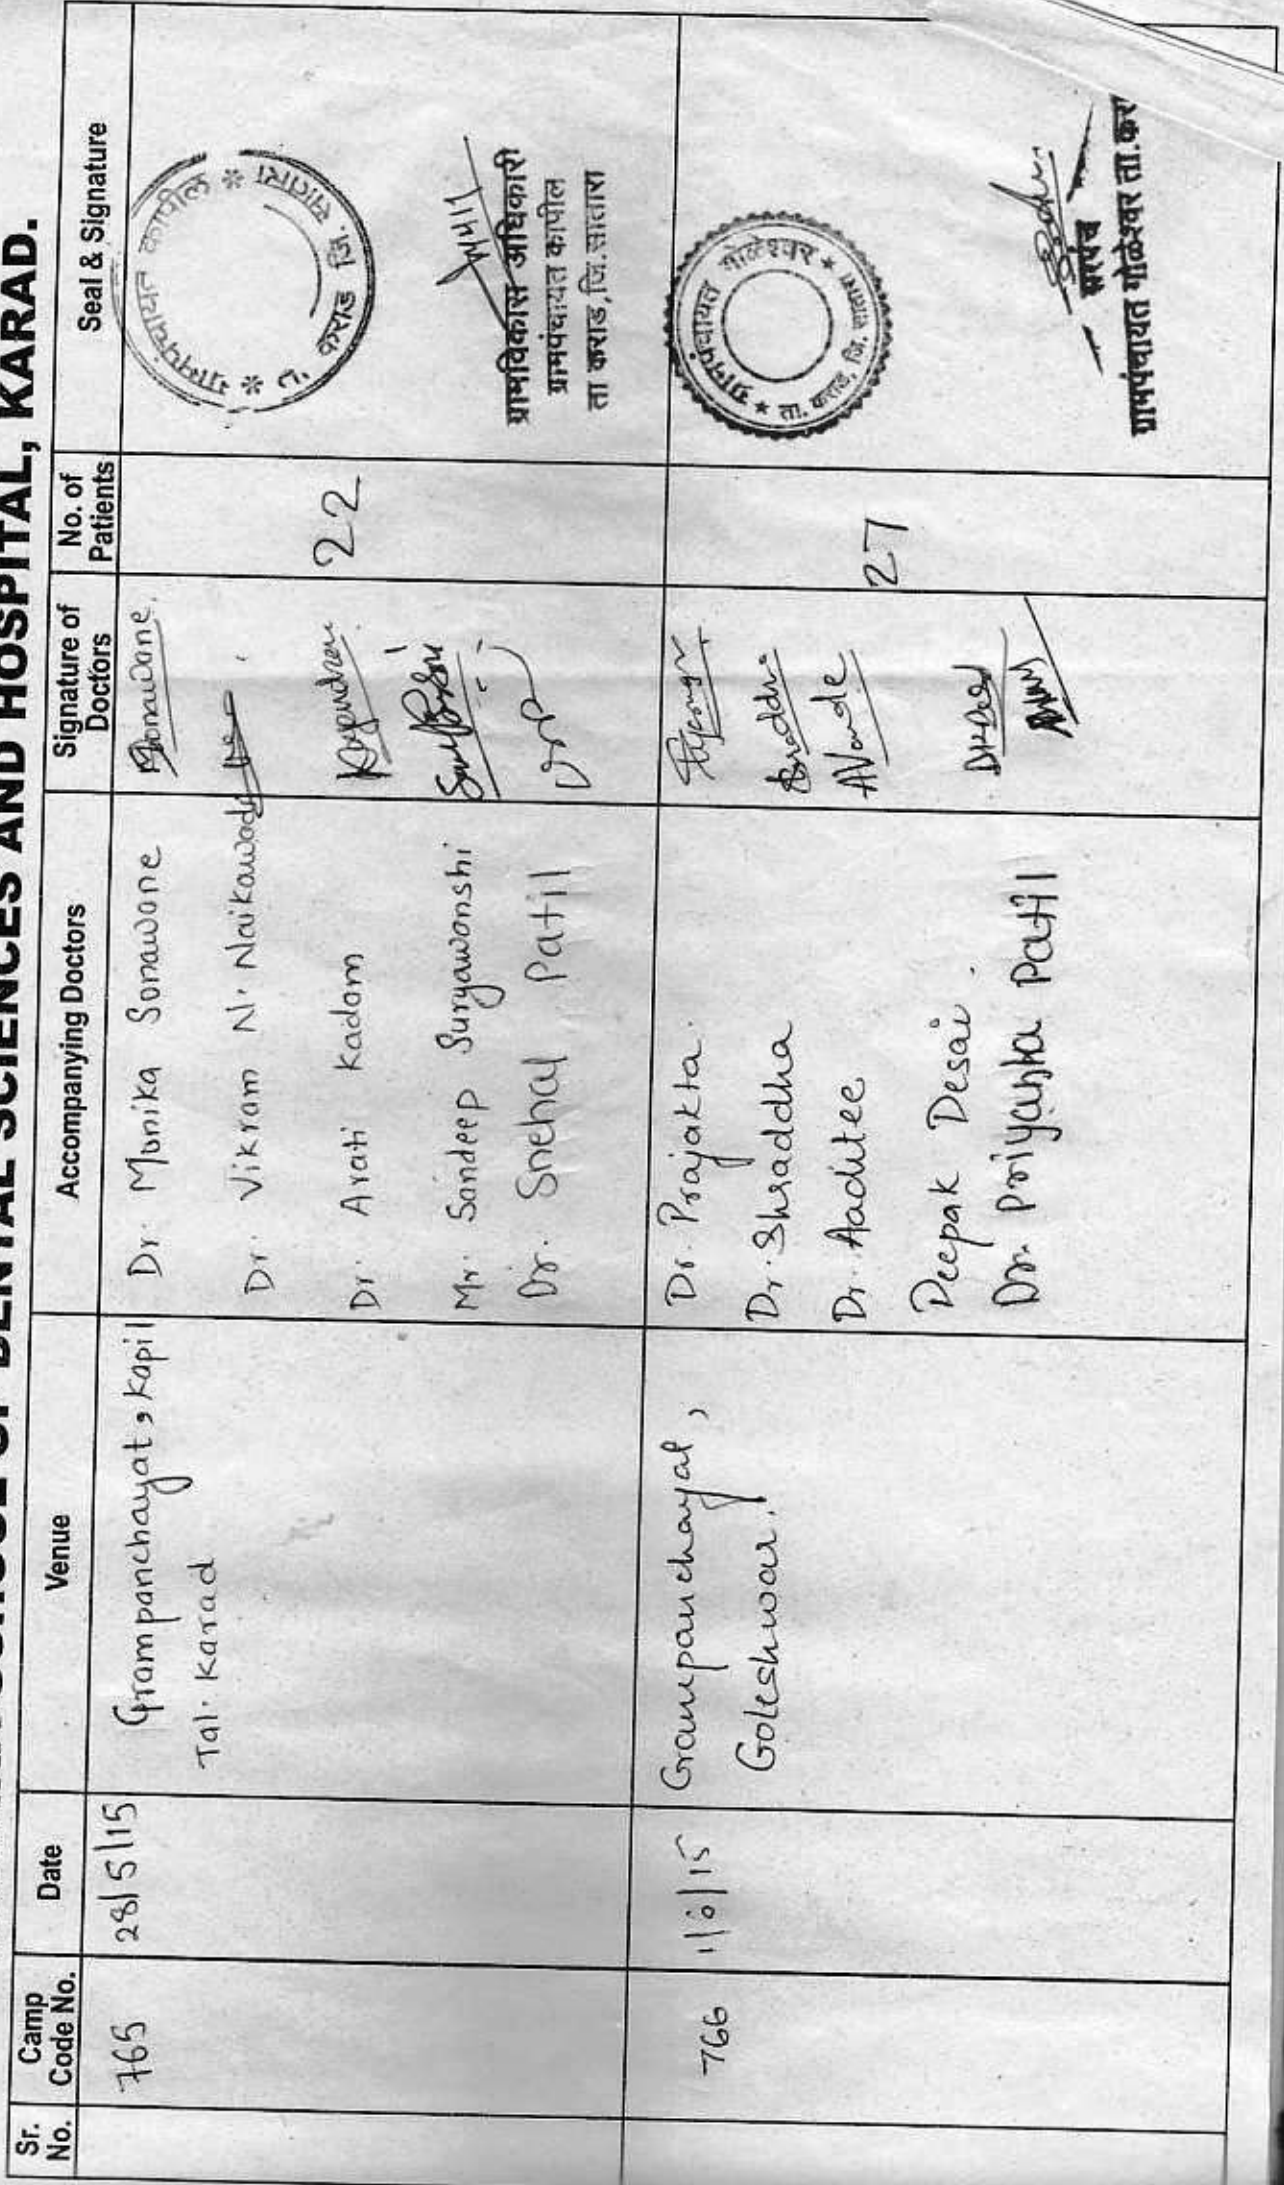 SCHOOL OF DENTAL SCIENCES AND HOSPITAL, KARAD.
Sr. No.
Camp Code No.
Date
Venue
Accompanying Doctors
Signature of Doctors
No. of Patients
Seal & Signature
765
28/5/15
Grampanchayat, Kapil
Tal. Karad
Dr. Monika Sonawone
Dr. Vikram N. Naikawade
Dr. Arati Kadam
Mr. Sandeep Suryawonshi
Dr. Snehal Patil
Sonawane
22
ग्रामपंचायत कापील * ता. कराड जि. सातारा *
ग्रामविकास अधिकारी
ग्रामपंचायत कापील
ता कराड,जि.सातारा
766
1/6/15
Grampanchayat,
Goleshwar.
Dr. Prajakta.
Dr. Shraddha
Dr. Aaditee
Deepak Desai.
Dr. Priyanka Patil
Shraddha
AVande
27
ग्रामपंचायत गोळेश्वर * ता. कराड, जि. सातारा *
सरपंच
ग्रामपंचायत गोळेश्वर ता.करा